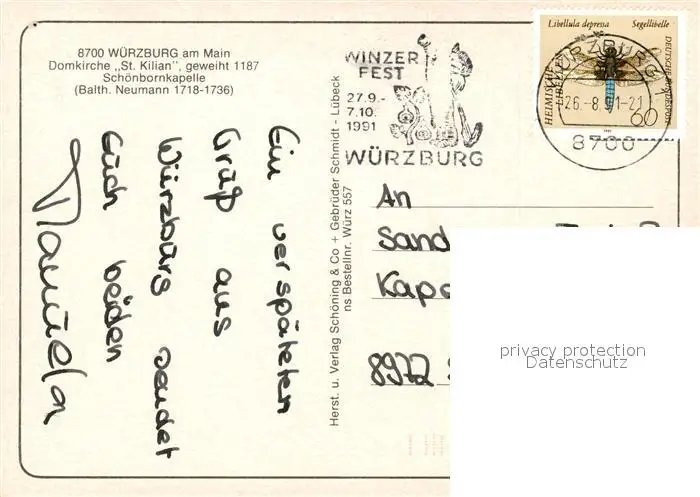 8700 WÜRZBURG am Main
Domkirche „St. Kilian", geweiht 1187
Schönbornkapelle
(Balth. Neumann 1718-1736)
Ein verspäteten
Gruß aus
Würzburg sendet
Euch beiden
Manuela
Herst. u. Verlag Schöning & Co + Gebrüder Schmidt - Lübeck
ns Bestellnr. Würz 557
WINZER
FEST
27.9.-
7.10.
1991
WÜRZBURG
Libellula depressa Segellibelle
HEIMISCHE
LIBELLEN
DEUTSCHE BUNDESPOST
60
WÜRZBURG 1
26.-8.91-21
8700
An
Sand
Kap
8972
privacy protection
Datenschutz